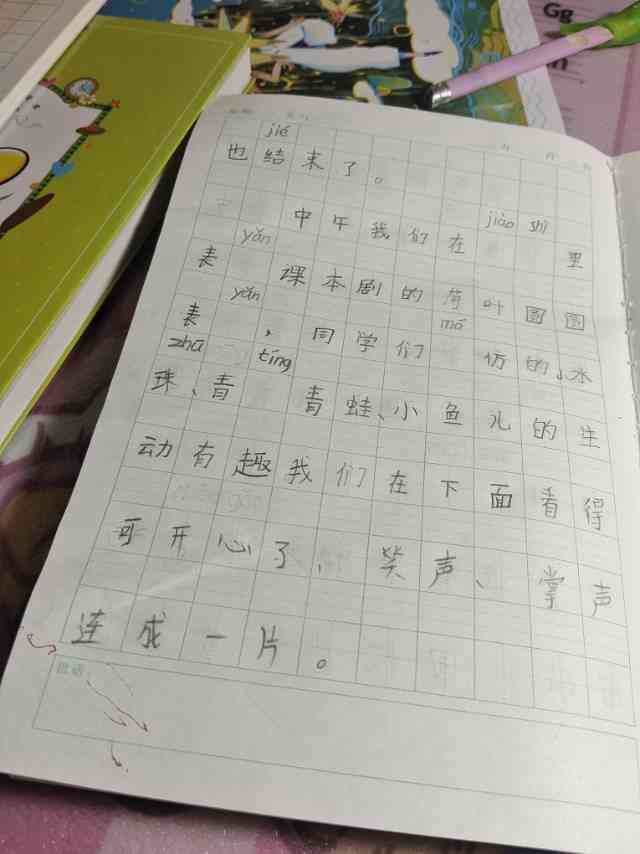 Gg
jié
也结束了。
jiào shì
中午我们在 里
yǎn
表 课本剧的荷叶圆圆
yǎn mó
表 ,同学们 仿的小水
zhū tíng
珠、青 青蛙、小鱼儿的生
动有趣我们在下面看得
可开心了、笑声、掌声
连成一片。